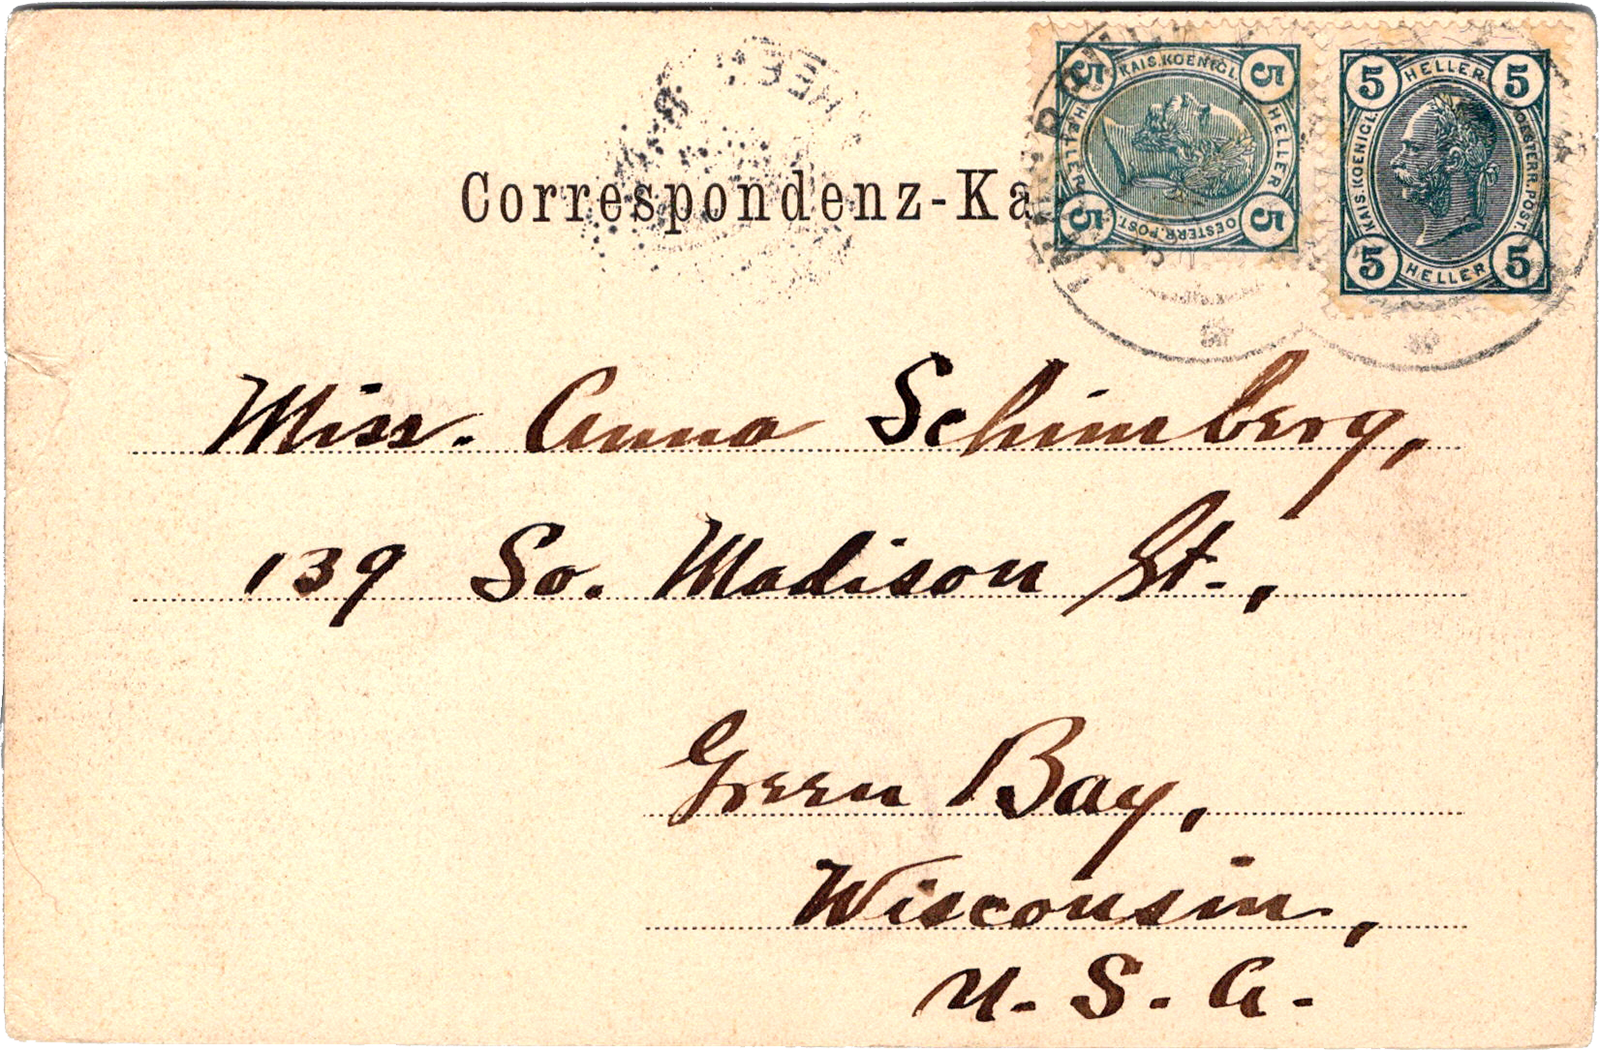 Correspondenz-Ka
5 KAIS. KOENIGL. 5
HELLER HELLER
5 OESTERR. POST. 5
5 HELLER 5
KAIS. KOENIGL. OESTERR. POST.
5 HELLER 5
Miss. Anna Schimberg,
139 So. Madison St.,
Green Bay,
Wisconsin,
U. S. A.